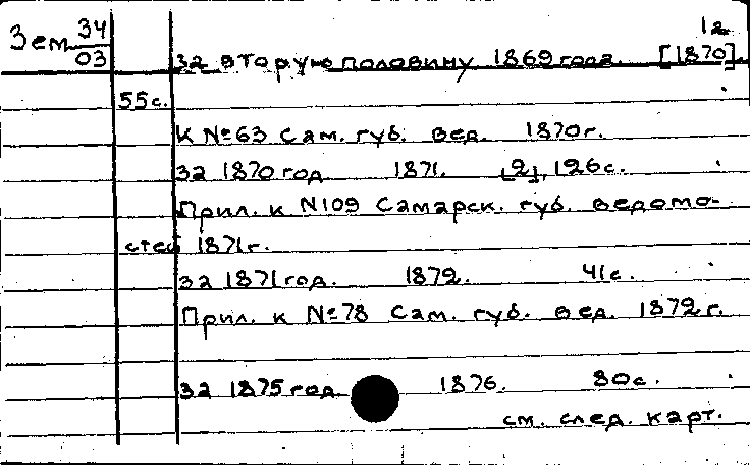 12
Зем 34
03
за вторую половину 1869 года. [1870].
55с.
К №63 Сам. губ. вед. 1870г.
за 1870 год 1871. [2], 126с.
Прил. к N109 Самарск. губ. ведомо-
стей 1871г.
за 1871 год. 1872. 41с.
Прил. к №78 Сам. губ. вед. 1872г.
за 1875 год 1876. 80с.
см. след. карт.